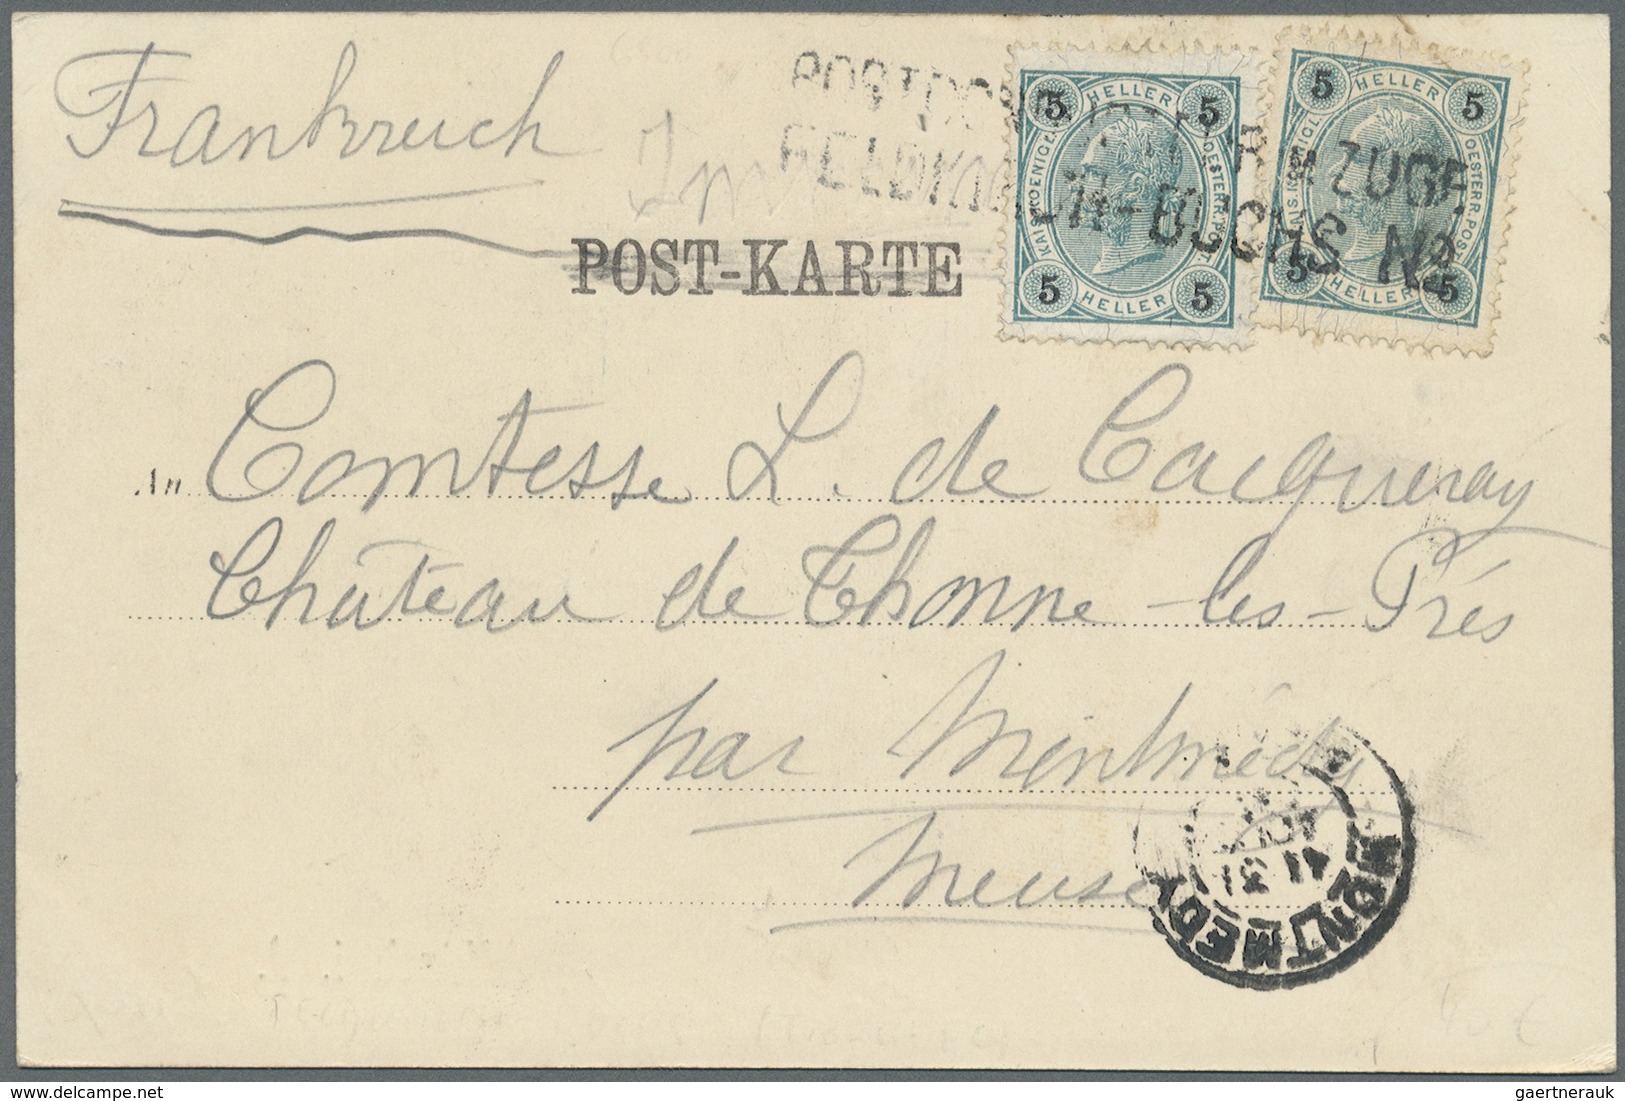 Frankreich
POSTCONDUCTEUR IM ZUGE
FELDKIRCH-BUCHS No
POST-KARTE
5 HELLER 5
KAIS. KOENIGL. OESTERR. POST
5 HELLER 5
5 HELLER 5
KAIS. KOENIGL. OESTERR. POST
5 HELLER 5
An Comtesse L. de Cacqueray
Château de Thonne-les-Prés
par Montmédy
Meuse
MONTMEDY
40 €
gaertnerauk